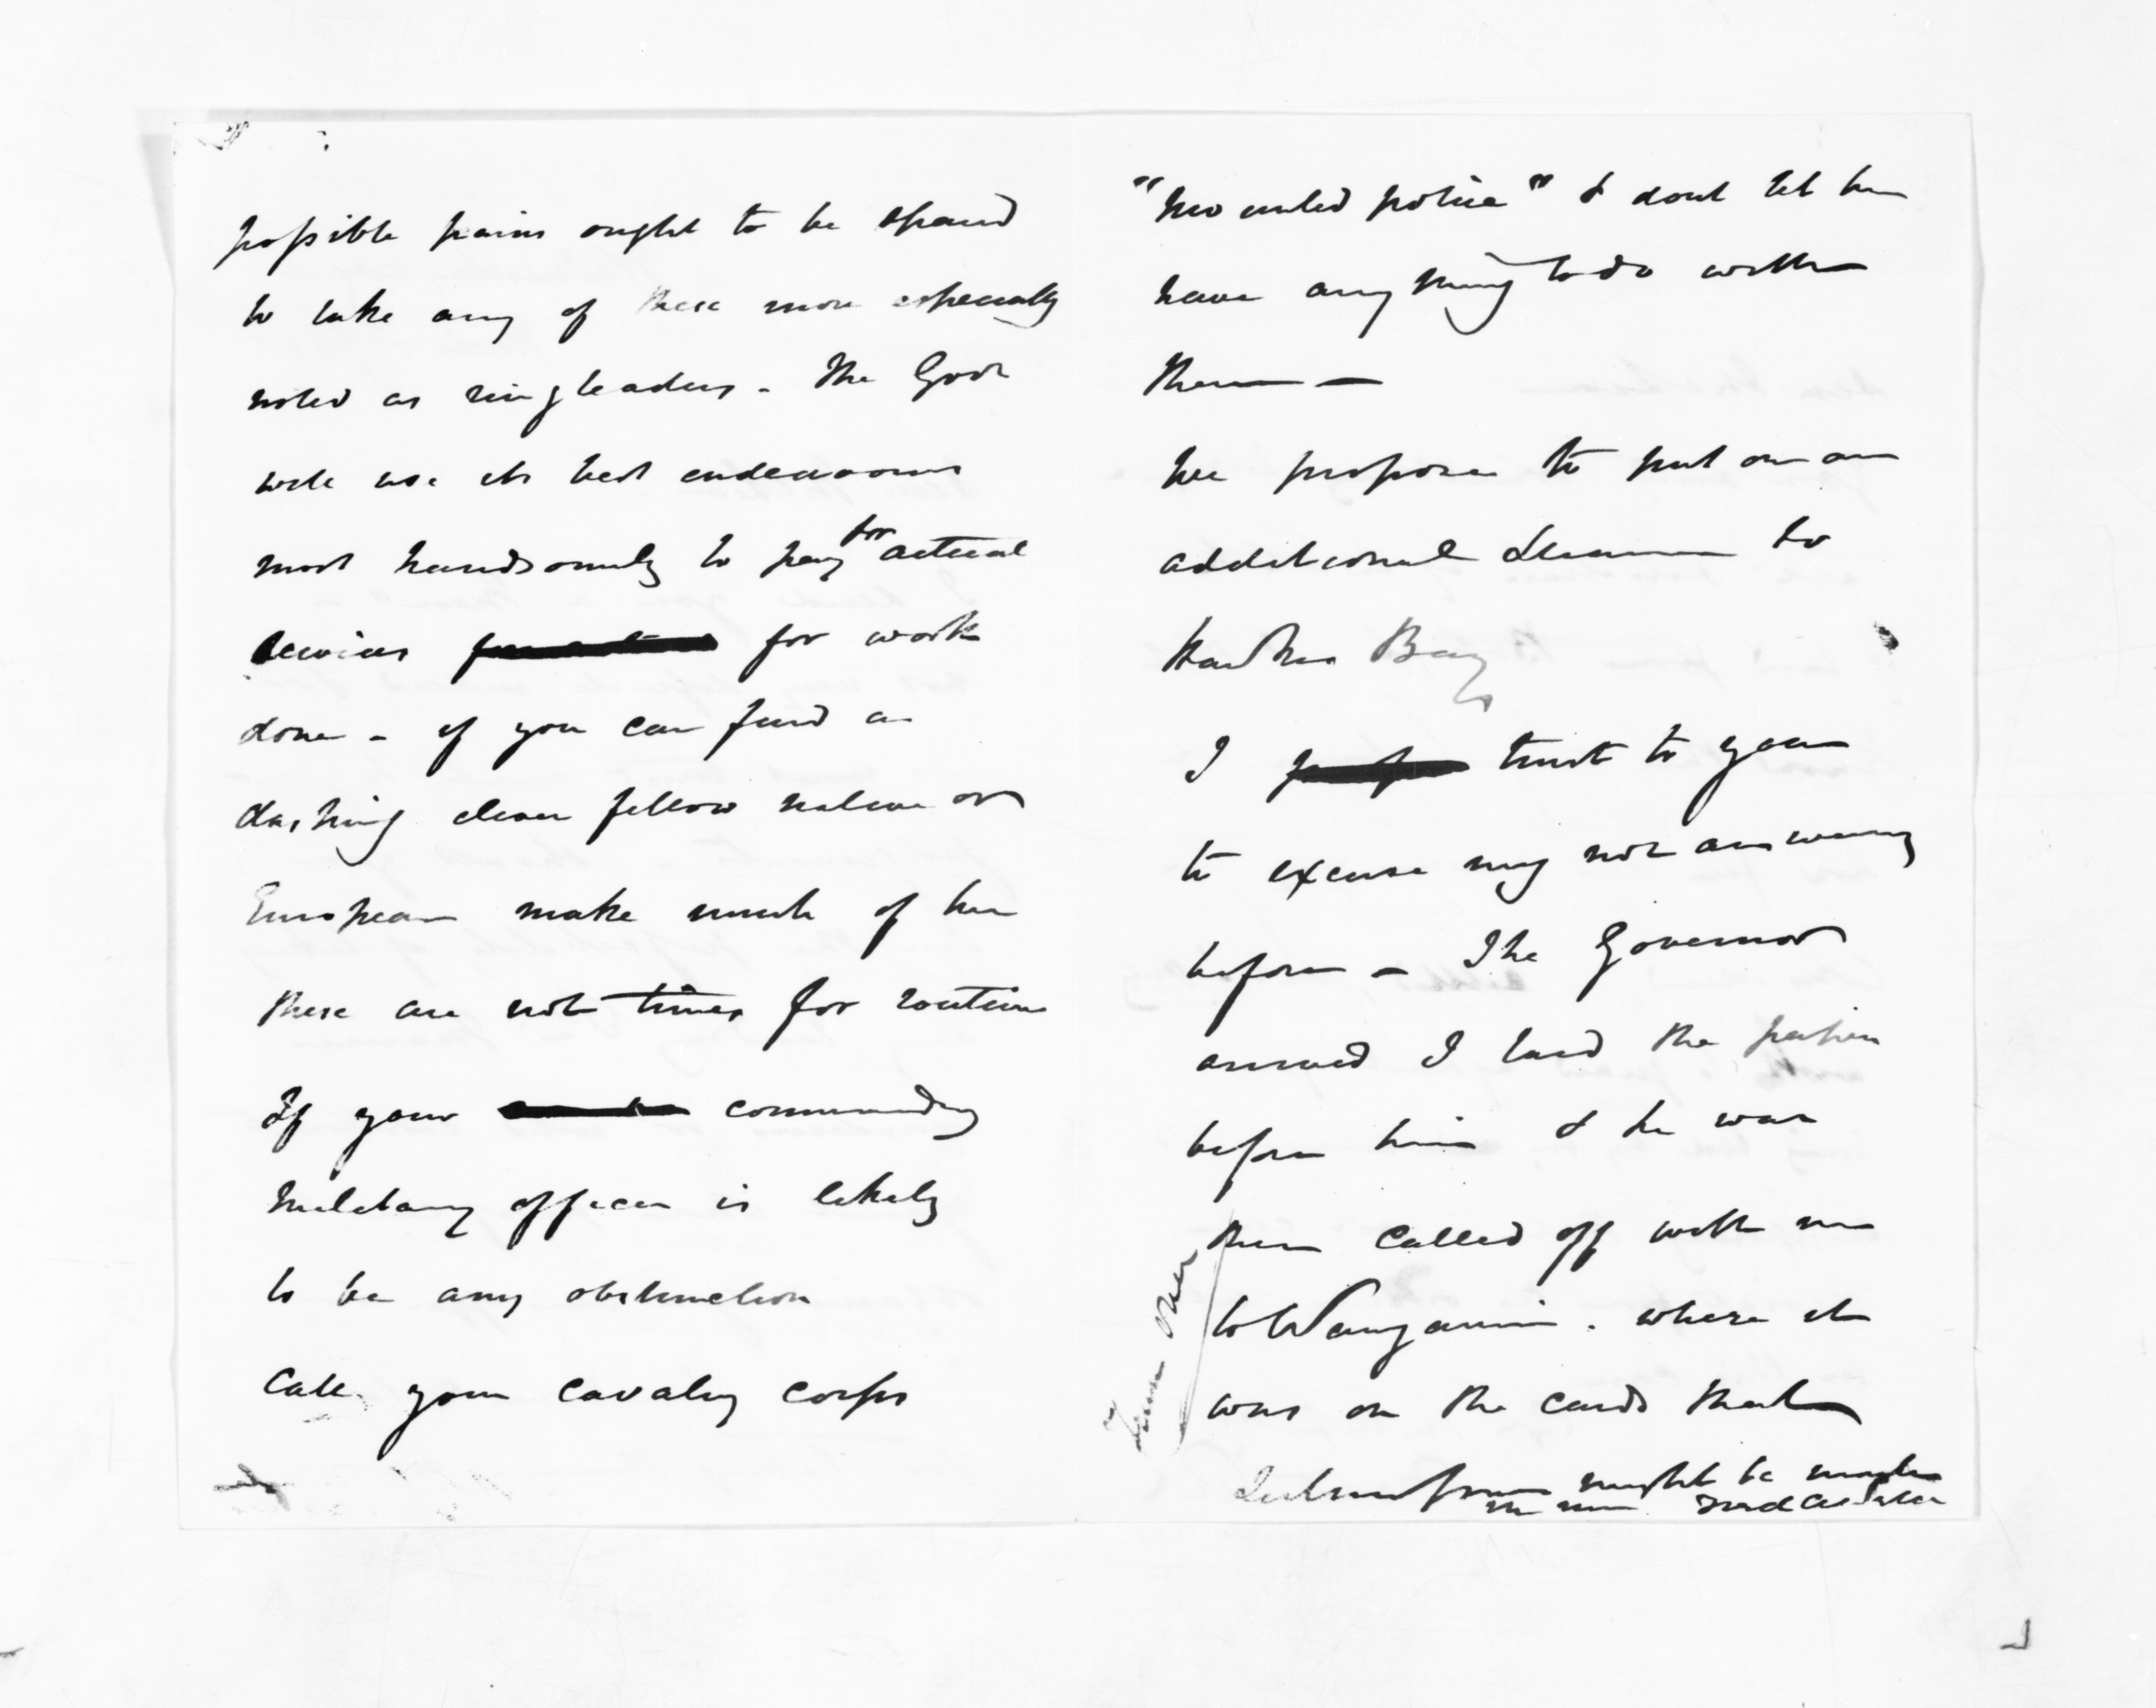 possible pains ought to be spared
to take any of these more especially
noted as ringleaders - The Govt
will use its best endeavours
most handsomely to pay for actual
services for work
done - if you can find a
dashing clever fellow native or
European make much of him
these are not times for routine
If your commanding
Military officer is likely
to be any obstruction
Call your cavalry corps
"Mounted police" & dont let him
have anything to do with
them —
We propose to put on an
additional steamer to
Hawkes Bay
I trust to you
to excuse my not answering
before - The Governor
arrived I laid the papers
before him & he was
then called off with me
to Wanganui. where it
was on the cards that
might be made
Turn over